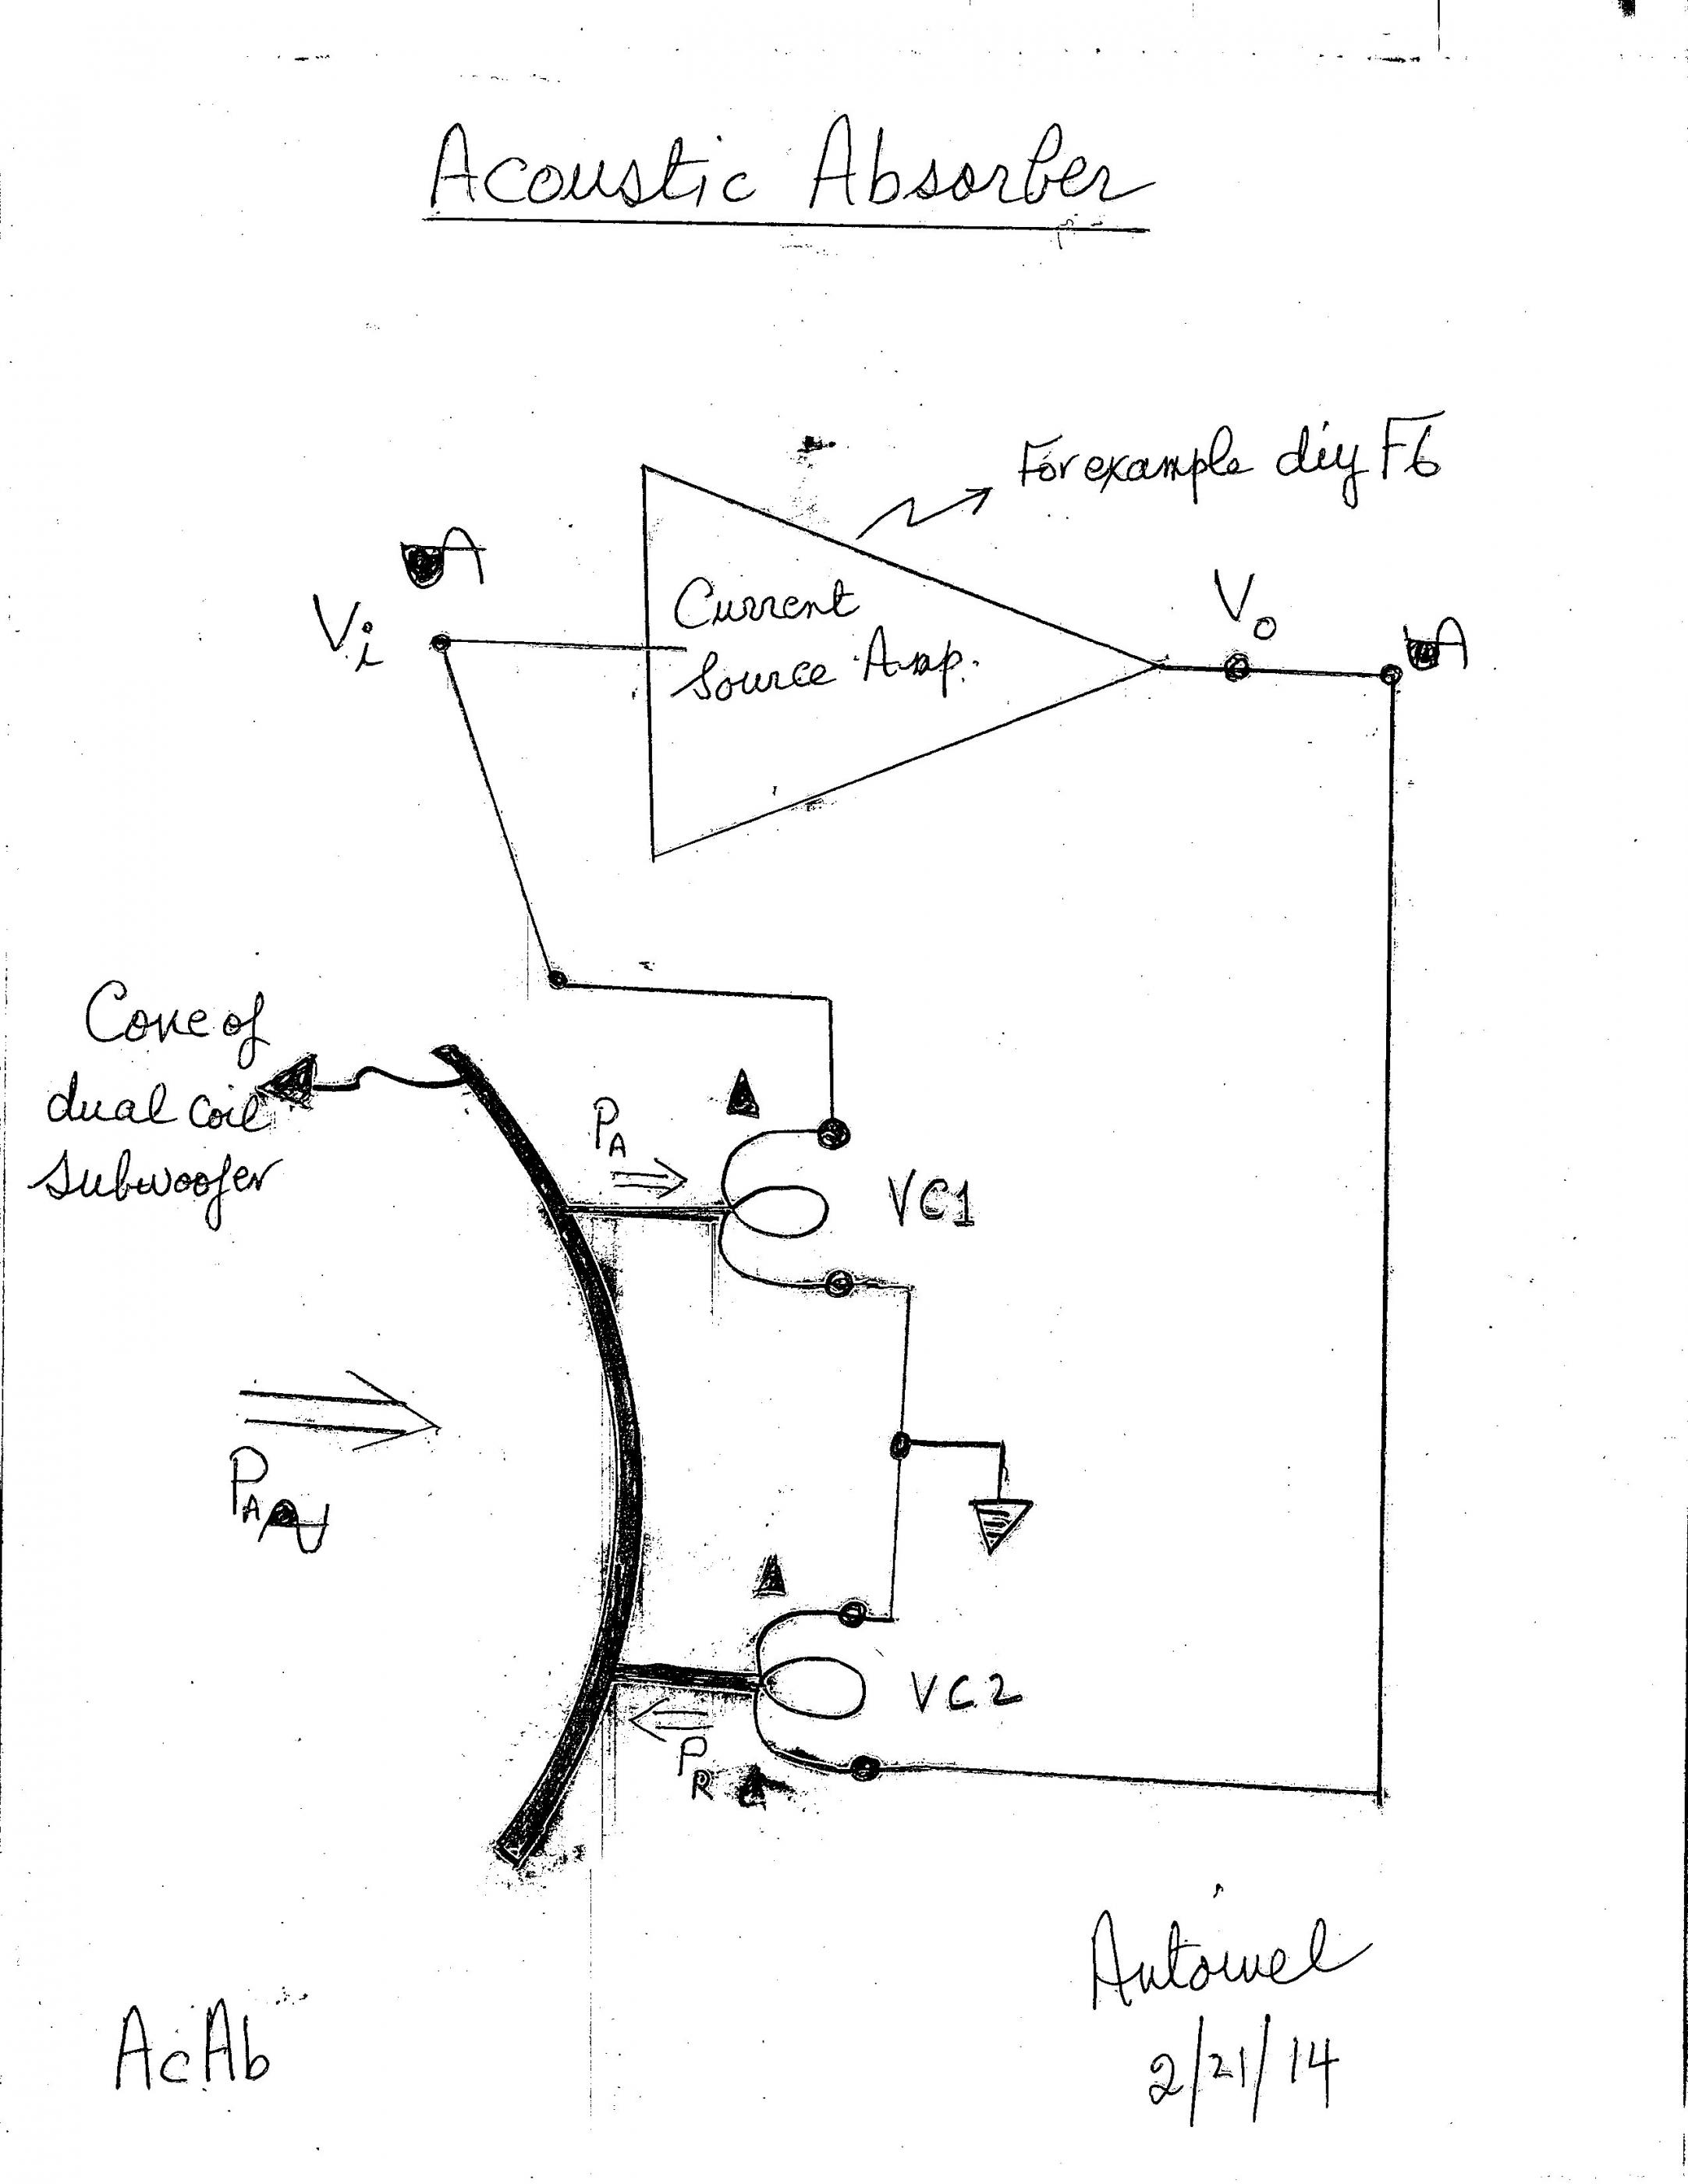 Acoustic Absorber
For example diy F6
Vi
Current
Source Amp.
Vo
Cone of
dual coil
subwoofer
PA
VC1
PA
VC2
PR
Antoinel
2/21/14
AcAb